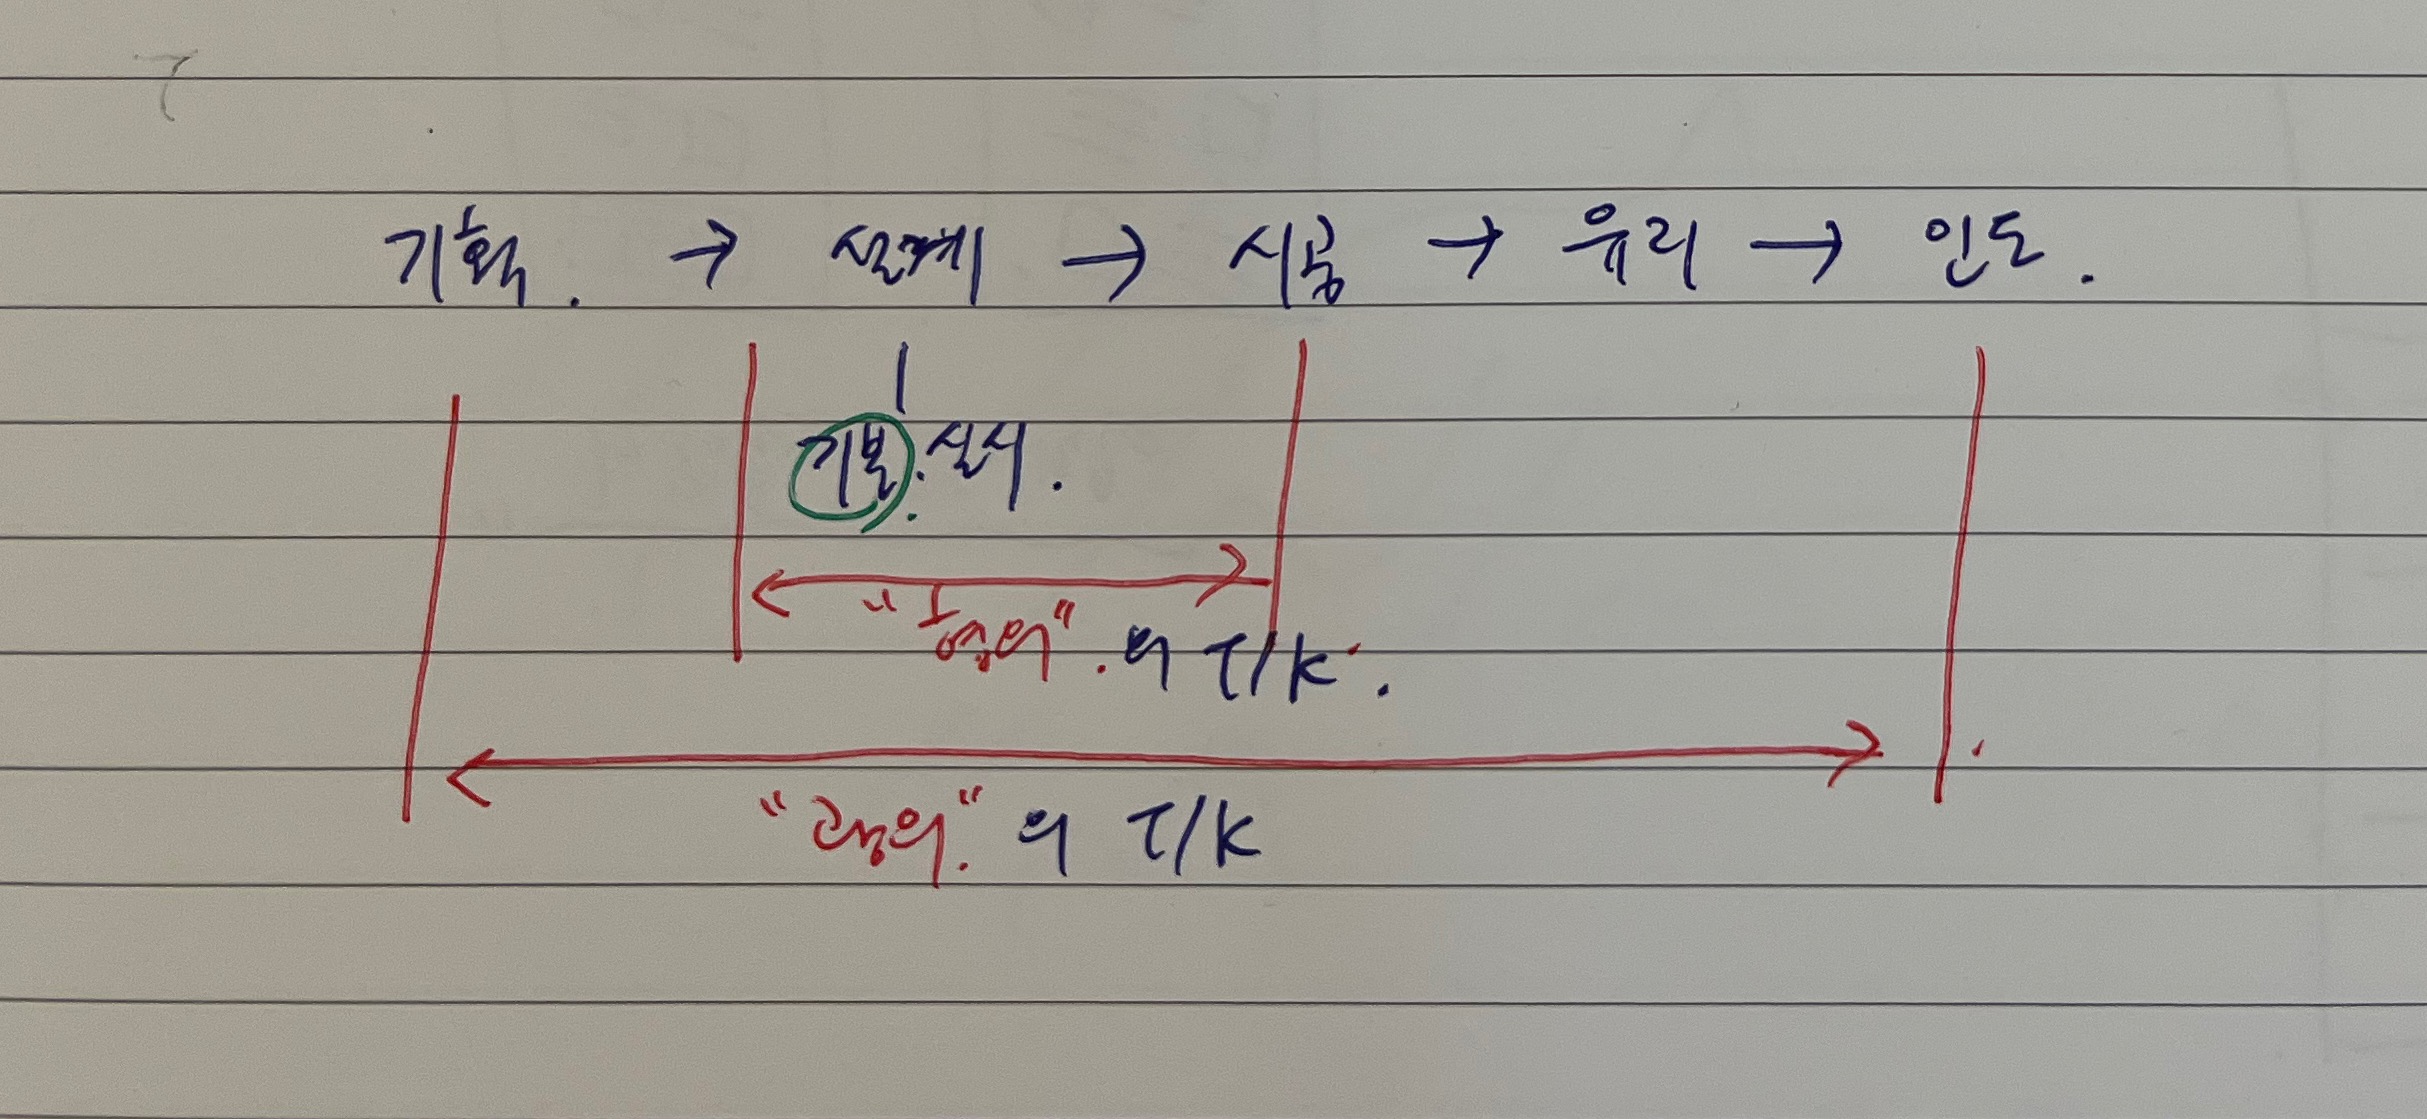 기획. → 설계 → 시공 → 유리 → 인도.
기본.실시.
"협의".의 T/K.
"광의."의 T/K